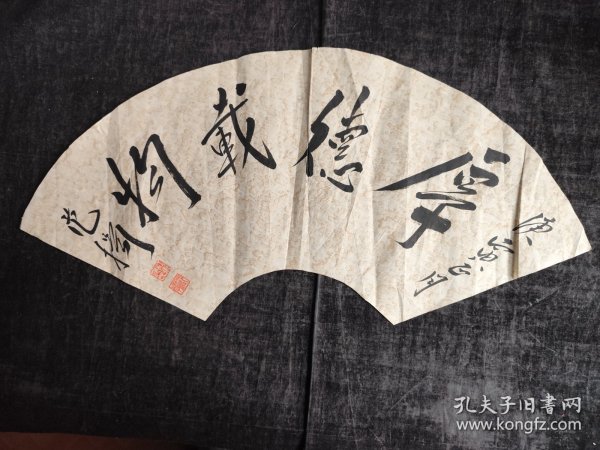 庚寅正月
厚德載物
孔夫子旧书网
www.kongfz.com